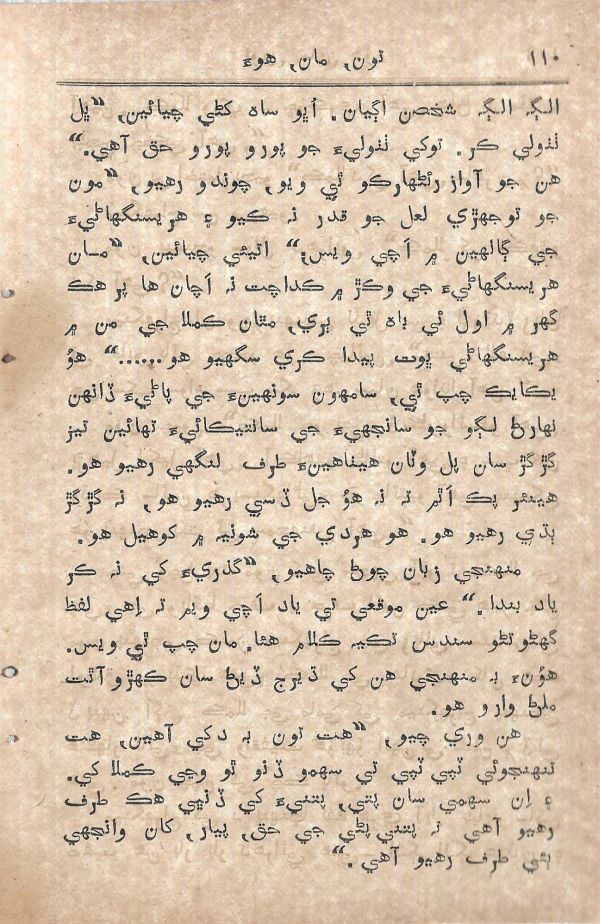 ١١٠ تون, مان, هوءَ
الڳ الڳ شخصن اڳيان. اُڀو ساه کڻي چيائين, ”ڀل
ٺٺولي ڪر. توکي ٺٺوليءَ جو پورو پورو حق آهي.“
هن جو آواز رئڻهارڪو ٿي ويو, چوندو رهيو, ”مون
جو توجهڙي لعل جو قدر نہ ڪيو ۽ هريسنگهاڻيءَ
جي ڳالهين ۾ اَچي ويس.“ اتيئي چيائين, ”مان
هريسنگهاڻيءَ جي وڪڙ ۾ ڪداچت نہ اَچان ها پر هڪ
گهر ۾ اول ئي باه ٿي ٻري, مٿان ڪملا جي من ۾
هريسنگهاڻي ڀوت پيدا ڪري سگهيو هو......“ هوُ
يڪايڪ چپ ٿي, سامهون سونهينءَ جي پاڻيءَ ڏانهن
نهارڻ لڳو جو سانجهيءَ جي سانتيڪائيءَ تهائين تيز
گڙگڙ سان پل وٽان هيٺاهينءَ طرف لنگهي رهيو هو.
هينئر پڪ اَٿم تہ نہ هوُ جل ڏسي رهيو هو, نہ گڙگڙ
ٻڌي رهيو هو. هو هردي جي شونيہ ۾ کوهيل هو.
منهنجي زبان چوڻ چاهيو, ”گذريءَ کي نہ ڪر
ياد بندا.“ عين موقعي تي ياد اَچي ويم تہ اِهي لفظ
گهڻوتڻو سندس تڪيہ ڪلام هئا. مان چپ ٿي ويس.
هوُنءَ بہ منهنجي هن کي ڌيرج ڏيڻ سان ڪهڙو آٿت
ملڻ وارو هو.
هن وري چيو, ”هت تون بہ دکي آهين, هت
تنهنجوئي ٽپي ٽپي تي سهمو ڏنو ٿو وڃي ڪملا کي.
۽ اِن سهمي سان پتي, پتنيءَ کي ڏنڀي هڪ طرف
رهيو آهي نہ پتنيپڻي جي حق, پيار, کان وانجهي
ٻئي طرف رهيو آهي.“